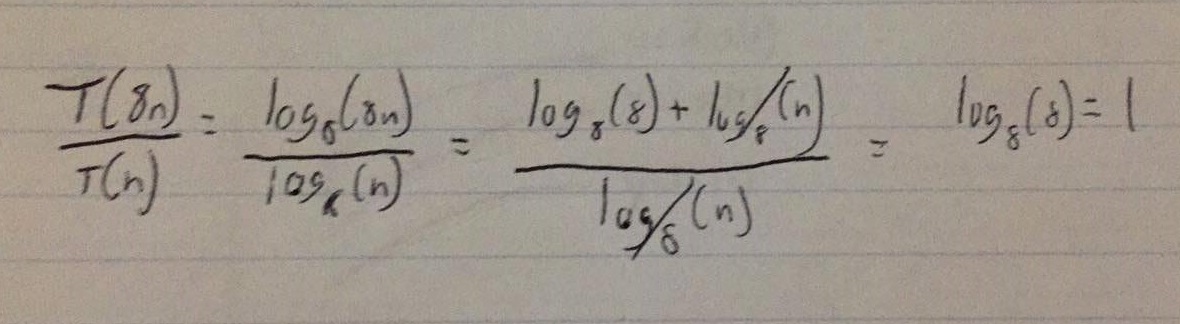 T(8n)/T(n) = log₈(8n)/log₈(n) = (log₈(8) + log₈(n))/log₈(n) = log₈(8) = 1